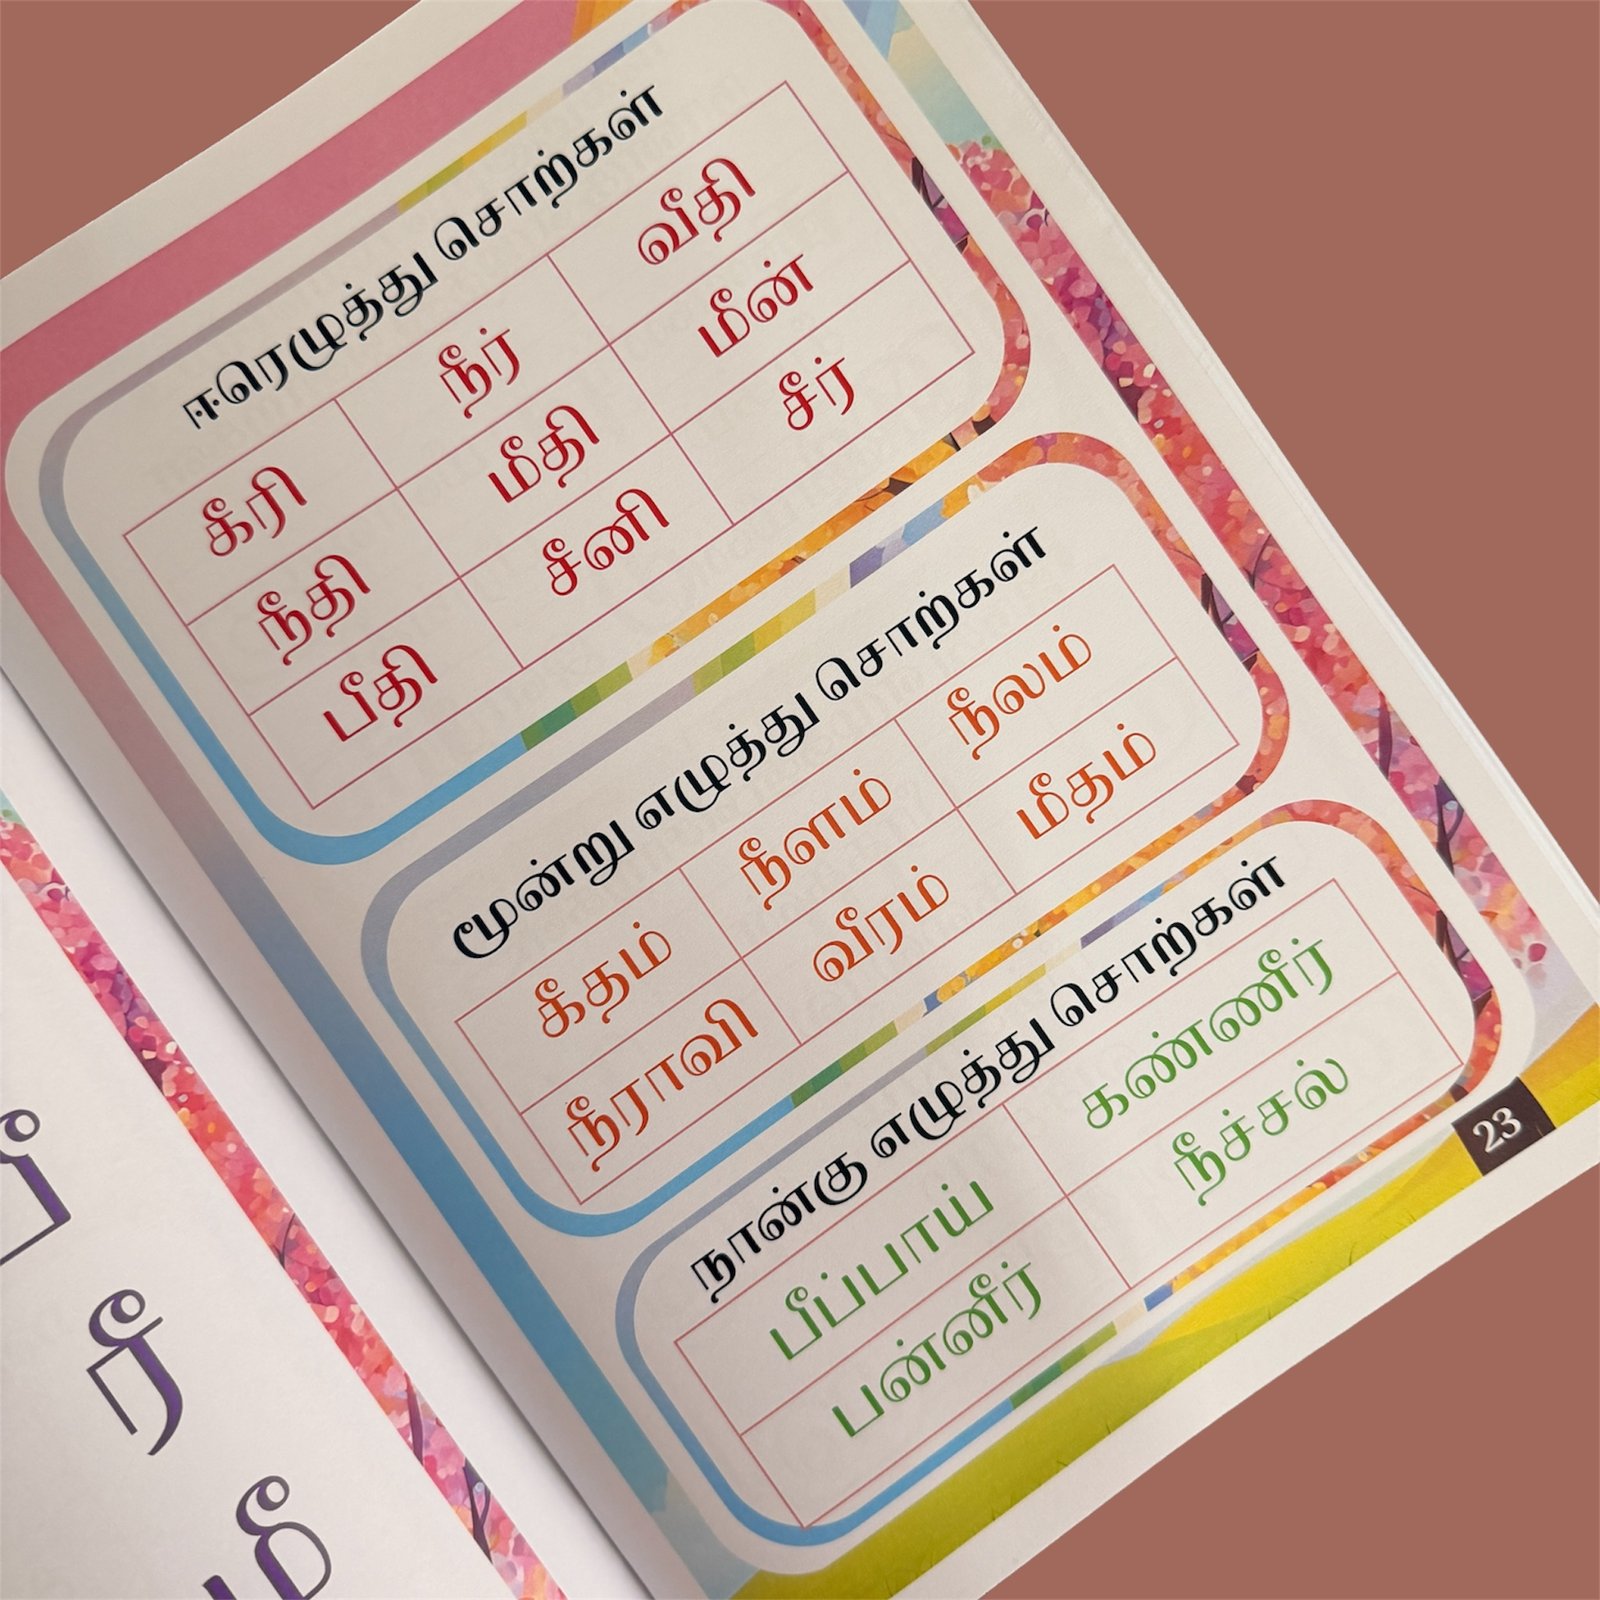 ரீ
மீ
ஈரெழுத்து சொற்கள்
கீரி நீர் வீதி
நீதி மீதி மீன்
பீதி சீனி சீர்
மூன்று எழுத்து சொற்கள்
கீதம் நீளம் நீலம்
நீராவி வீரம் மீதம்
நான்கு எழுத்து சொற்கள்
பீப்பாய் கண்ணீர்
பன்னீர் நீச்சல்
23